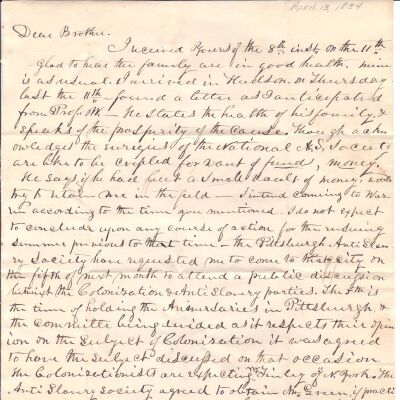 April 13, 1834
Dear Brother.
I received yours of the 8th inst. on the 11th
glad to hear the family are in good health, mine
is as usual. I arrived in Hudson on Thursday
last the 11th - found a letter as I anticipated
from Prof. — He states the health of his family, &
speaks of the prosperity of the cause. Though ackn
owledges the energies of the National A.S. Society
are like to be cripled for want of fund, money.
He says if he had but a small vault of money would
try to retain me in the field — I intend coming to War
ren according to the time you mentioned. I do not expect
to conclude upon any course of action for the ensuing
summer previous to that time — the Pittsburgh Anti Slav
ery Society have requested me to come to that City on
the fifth of next month to attend a public discussion
betwixt the Colonization & Anti Slavery parties. The 5th is
the time of holding the Anniversaries in Pittsburgh, &
the committee being divided as it respects their opin
ion on the Subject of Colonization it was agreed
to have the Subject discussed on that occasion
the Colonizationists are expecting Mr. Finley of N. York & the
Anti Slavery Society agreed to obtain Mr. Green, if practi